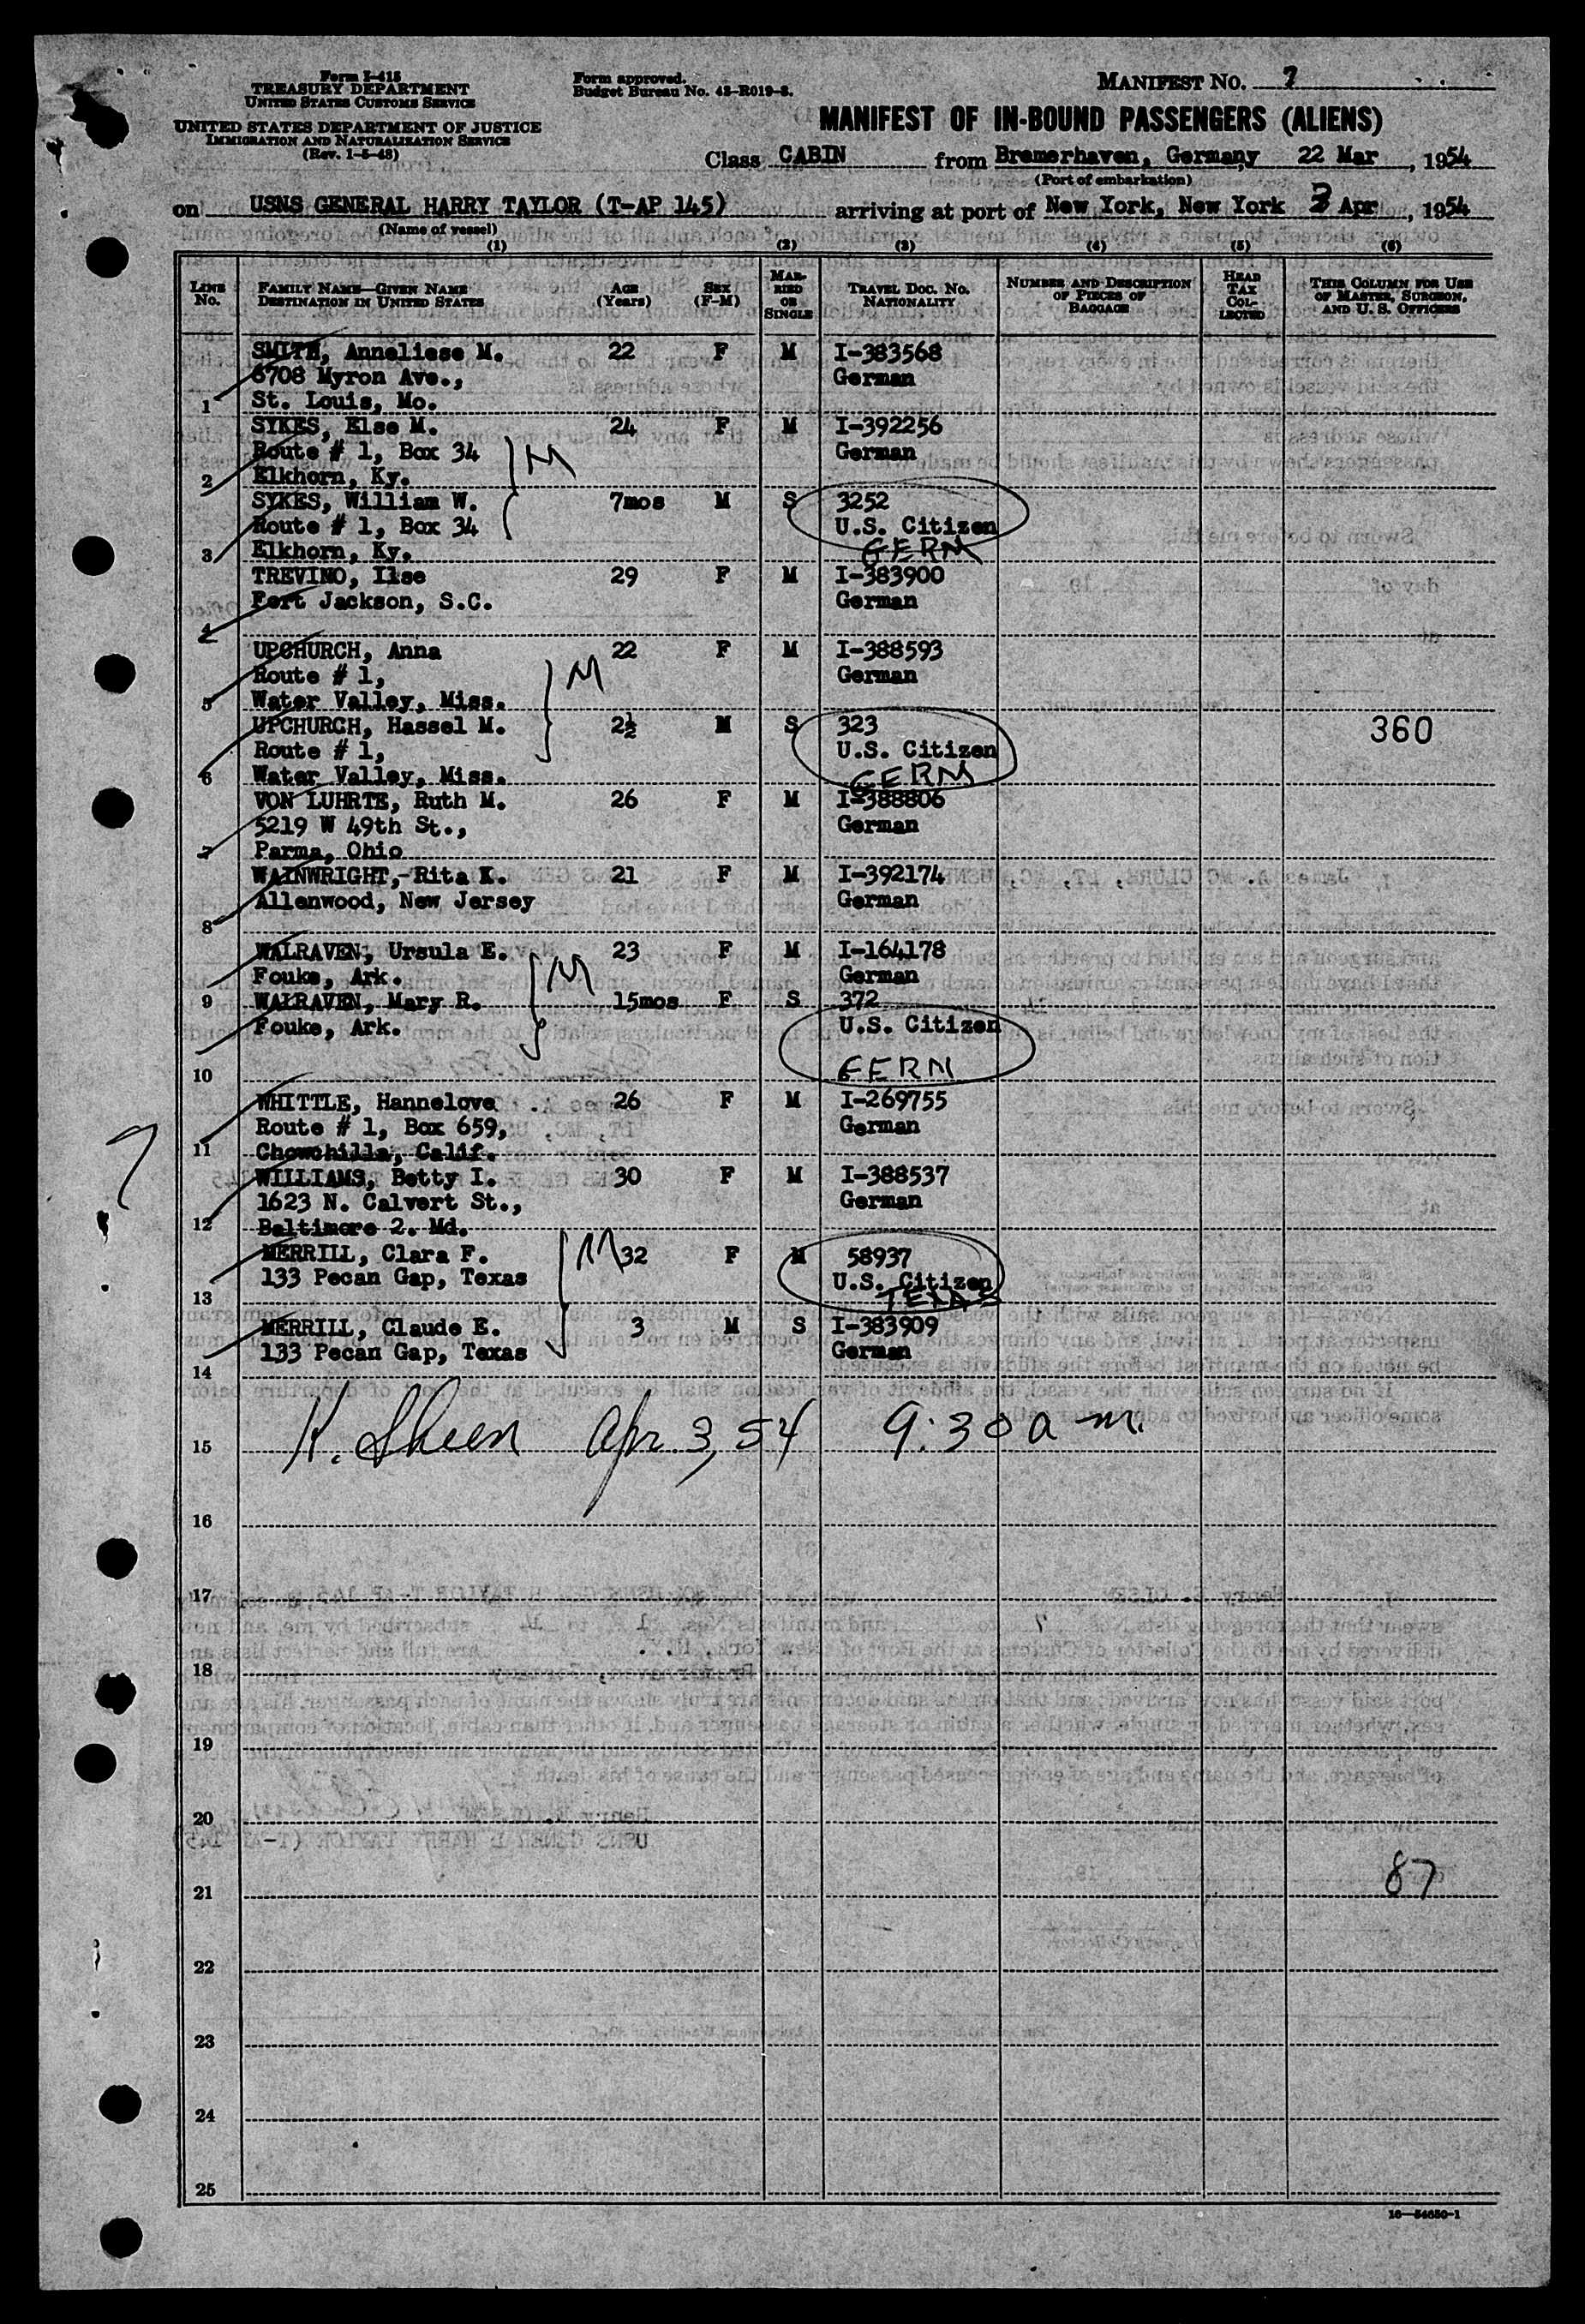 Form I-415
TREASURY DEPARTMENT
UNITED STATES CUSTOMS SERVICE
UNITED STATES DEPARTMENT OF JUSTICE
IMMIGRATION AND NATURALIZATION SERVICE
(Rev. 1-5-48)
Form approved.
Budget Bureau No. 43-R019-3.
MANIFEST NO. 7
MANIFEST OF IN-BOUND PASSENGERS (ALIENS)
Class CABIN from Bremerhaven, Germany, 22 Mar, 1954
(Port of embarkation)
on USNS GENERAL HARRY TAYLOR (T-AP 145) arriving at port of New York, New York 3 Apr, 1954
(Name of vessel)
(1) (2) (3) (4) (5) (6)
LINE No. FAMILY NAME—GIVEN NAME DESTINATION IN UNITED STATES AGE (Years) SEX (F-M) MARRIED OR SINGLE TRAVEL DOC. NO. NATIONALITY NUMBER AND DESCRIPTION OF PIECES OF BAGGAGE HEAD TAX COLLECTED THIS COLUMN FOR USE OF MASTER, SURGEON, AND U. S. OFFICERS
SMITH, Anneliese M. 22 F M I-383568
6708 Myron Ave., German
1 St. Louis, Mo.
SYKES, Else M. 24 F M I-392256
Route # 1, Box 34 M German
2 Elkhorn, Ky.
SYKES, William W. 7mos M S 3252
Route # 1, Box 34 U.S. Citizen
3 Elkhorn, Ky. GERM
TREVINO, Ilse 29 F M I-383900
Fort Jackson, S.C. German
4
UPCHURCH, Anna 22 F M I-388593
Route # 1, M German
5 Water Valley, Miss.
UPCHURCH, Hassel M. 2½ M S 323 360
Route # 1, U.S. Citizen
6 Water Valley, Miss. GERM
VON LUHRTE, Ruth M. 26 F M I-388806
5219 W 49th St., German
7 Parma, Ohio
WAINWRIGHT, Rita K. 21 F M I-392174
Allenwood, New Jersey German
8
WALRAVEN, Ursula E. 23 F M I-164178
Fouke, Ark. M German
9 WALRAVEN, Mary R. 15mos F S 372
Fouke, Ark. U.S. Citizen
10 GERM
WHITTLE, Hannelove 26 F M I-269755
Route # 1, Box 659, German
11 Chowchilla, Calif.
WILLIAMS, Betty I. 30 F M I-388537
1623 N. Calvert St., German
12 Baltimore 2. Md.
MERRILL, Clara F. M 32 F M 58937
133 Pecan Gap, Texas U.S. Citizen
13 TEXAS
MERRILL, Claude E. 3 M S I-383909
133 Pecan Gap, Texas German
14
15 K. Skeen Apr. 3, 54 9:30 a m.
16
17
18
19
20
21 87
22
23
24
25
16—54650-1